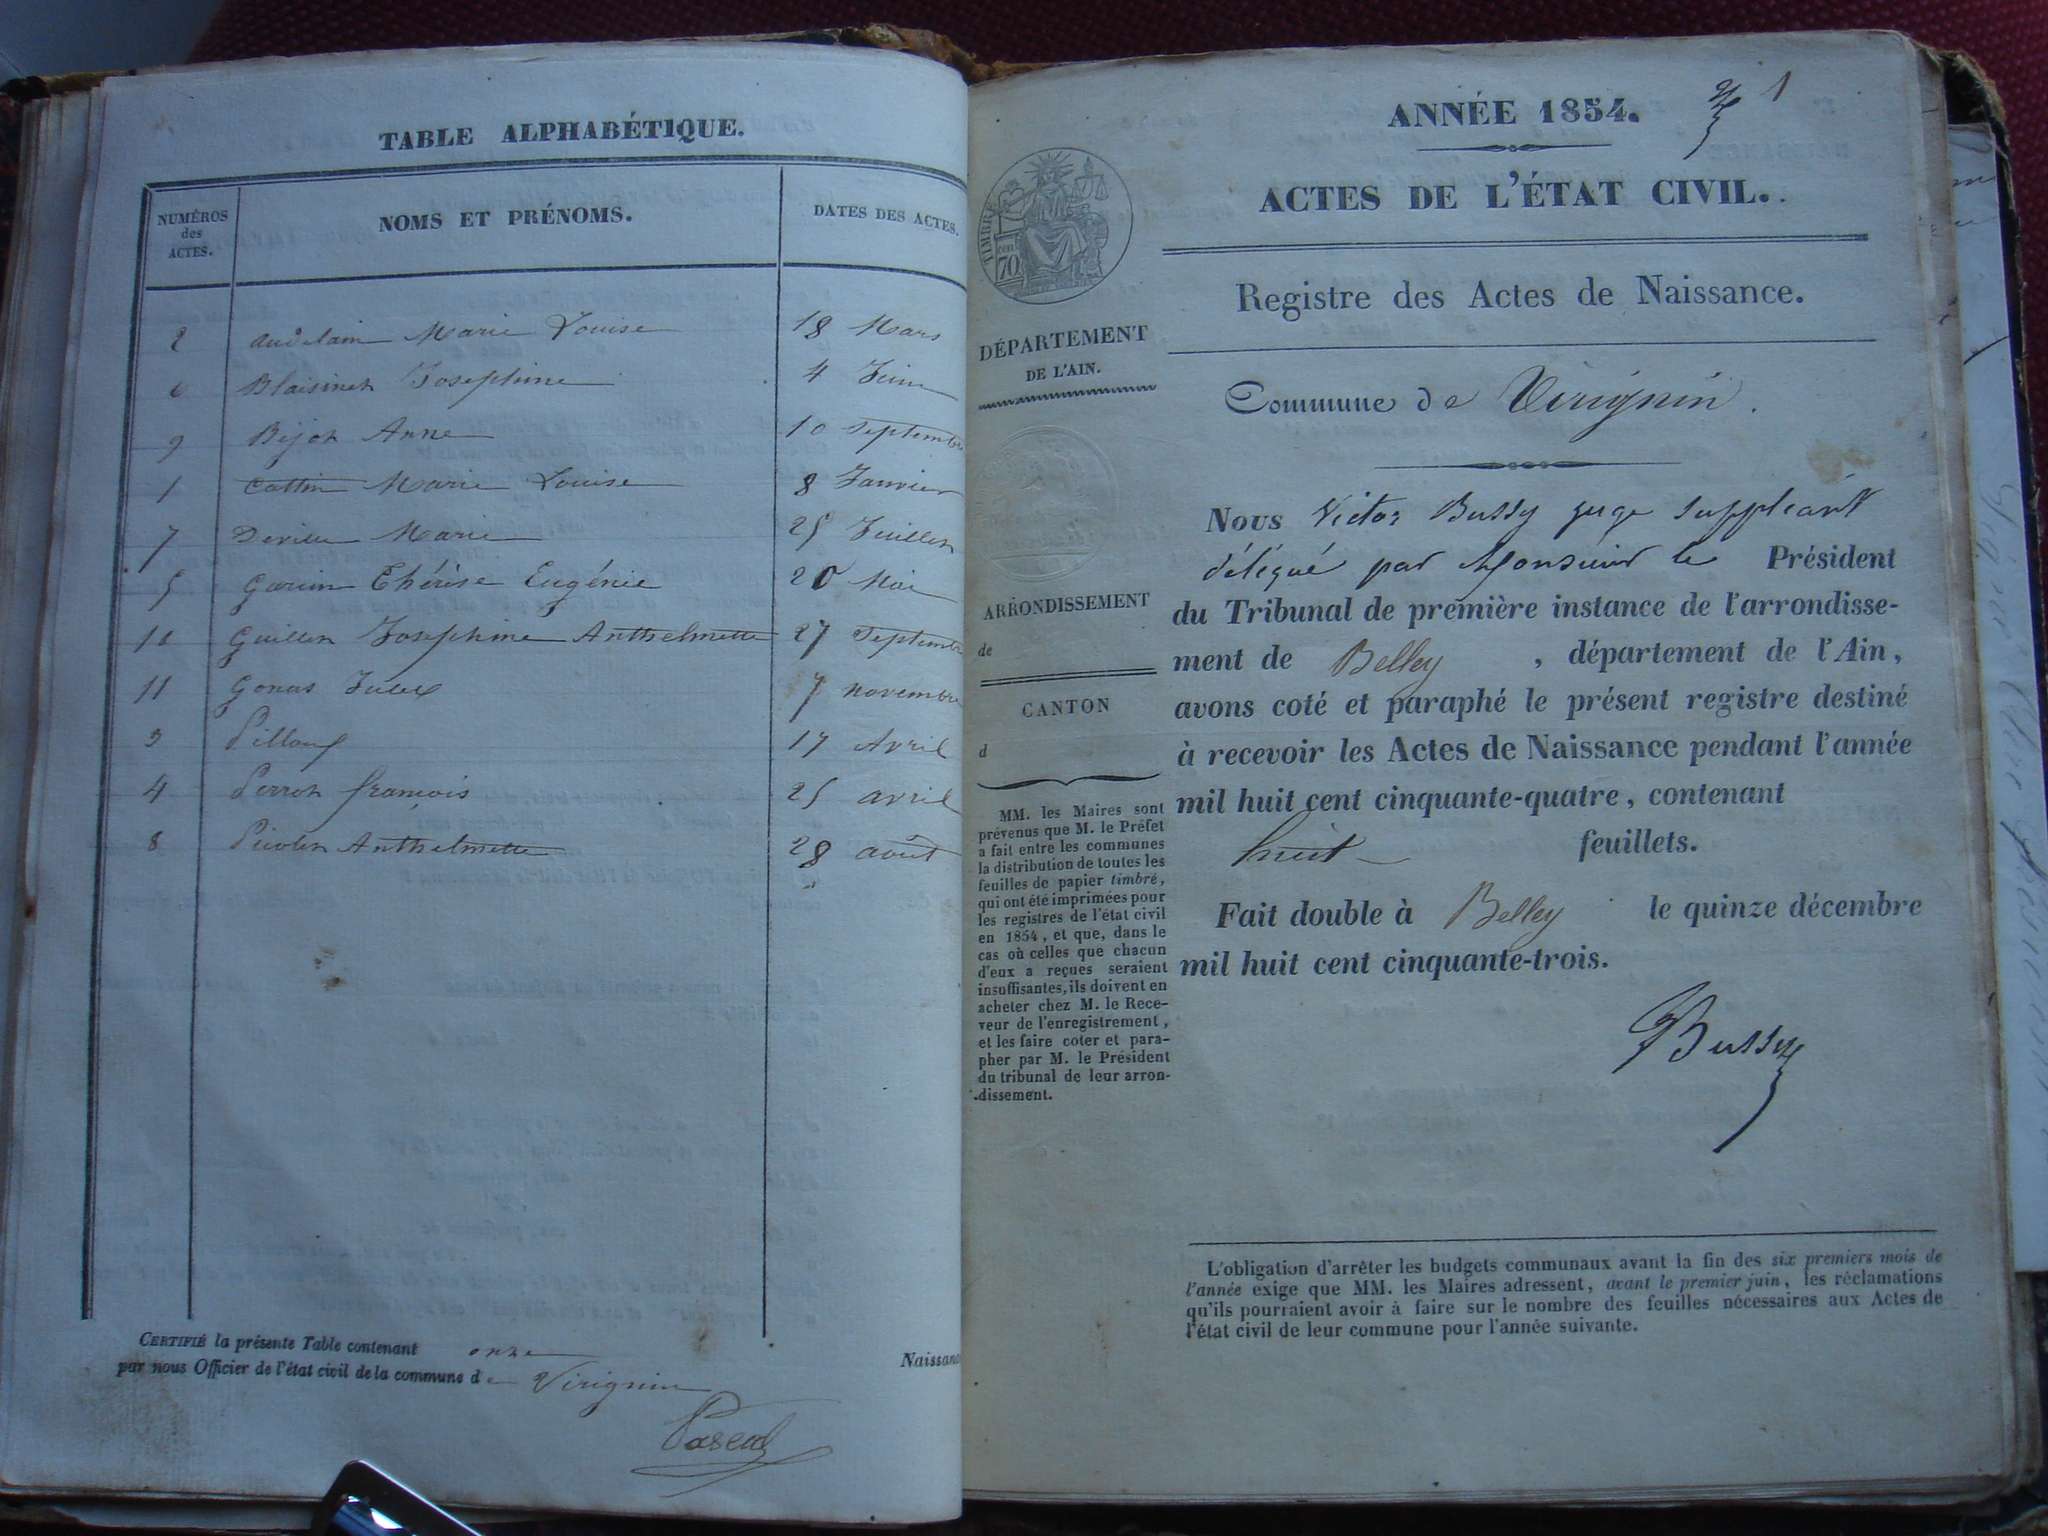 TABLE ALPHABÉTIQUE.
NUMÉROS des ACTES. NOMS ET PRÉNOMS. DATES DES ACTES.
2 Marie Louise 18 Mars
6 Josephine 4 Juin
9 Anne 10 Septembre
1 Cottin Marie Louise 8 Janvier
7 Marie 25 Juillet
5 Garin Thérèse Eugénie 20 Mai
10 Guillet Josephine Anthelmette 27 Septembre
11 Gonas Jules 7 novembre
3 17 Avril
4 Perrot françois 25 avril
8 Anthelmette 28 août
CERTIFIÉ la présente Table contenant onze
par nous Officier de l'état civil de la commune de Virignin
Naissanc
ANNÉE 1854. 1
ACTES DE L'ÉTAT CIVIL.
Registre des Actes de Naissance.
TIMBRE
70
DÉPARTEMENT
DE L'AIN.
ARRONDISSEMENT
de
CANTON
d
MM. les Maires sont
prévenus que M. le Préfet
a fait entre les communes
la distribution de toutes les
feuilles de papier timbré,
qui ont été imprimées pour
les registres de l'état civil
en 1854, et que, dans le
cas où celles que chacun
d'eux a reçues seraient
insuffisantes, ils doivent en
acheter chez M. le Rece-
veur de l'enregistrement,
et les faire coter et para-
pher par M. le Président
du tribunal de leur arron-
dissement.
Commune de Virignin.
Nous Victor Bussy juge suppléant
délégué par Monsieur le Président
du Tribunal de première instance de l'arrondisse-
ment de Belley, département de l'Ain,
avons coté et paraphé le présent registre destiné
à recevoir les Actes de Naissance pendant l'année
mil huit cent cinquante-quatre, contenant
huit feuillets.
Fait double à Belley le quinze décembre
mil huit cent cinquante-trois.
Bussy
L'obligation d'arrêter les budgets communaux avant la fin des six premiers mois de
l'année exige que MM. les Maires adressent, avant le premier juin, les réclamations
qu'ils pourraient avoir à faire sur le nombre des feuilles nécessaires aux Actes de
l'état civil de leur commune pour l'année suivante.